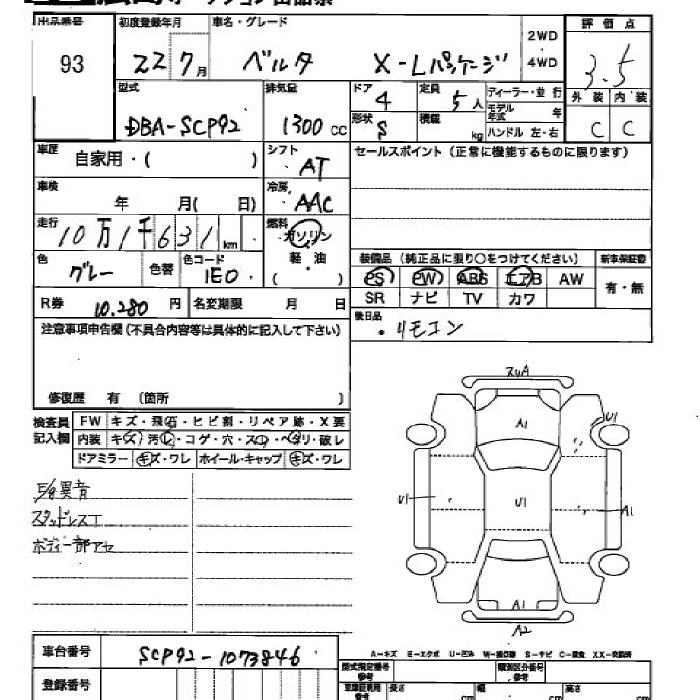 出品番号 初度登録年月 車名・グレード 評価点
93 22 7月 ベルタ X-Lパッケージ 2WD 4WD 3.5
型式 排気量 ドア 定員 ディーラー・並行 外装 内装
DBA-SCP92 1300cc 4 5人 モデル年式 年 C C
形状 S 積載 kg ハンドル 左・右
車歴 自家用・( ) シフト AT セールスポイント(正常に機能するものに限ります)
車検 年 月( 日) 冷房 AAC
走行 10万1千631km 燃料 ガソリン 軽油 ( )
色 グレー 色替 色コード 1E0 装備品(純正品に限り○をつけてください) 新車保証書
PS PW ABS エアB AW 有・無
SR ナビ TV カワ
R券 10.280円 名変期限 月 日 後日品
・リモコン
注意事項申告欄(不具合内容等は具体的に記入して下さい)
修復歴 有 〔箇所 〕
検査員記入欄 FW キズ・飛石・ヒビ割・リペア跡・X要
内装 キズ・汚レ・コゲ・穴・スレ・ヘタリ・破レ
ドアミラー キズ・ワレ ホイール・キャップ キズ・ワレ
E/g異音
スタッドレスT
ボディ一部アセ
ズリA
A1
U1
U1
U1
A1
A1
A2
A-キズ E-エクボ U-凹み S-サビ C-腐食 XX-交換済
車台番号 SCP92-1073846 型式指定番号 類別区分番号
参考 参考
登録番号 長さ cm 幅 cm 高さ cm